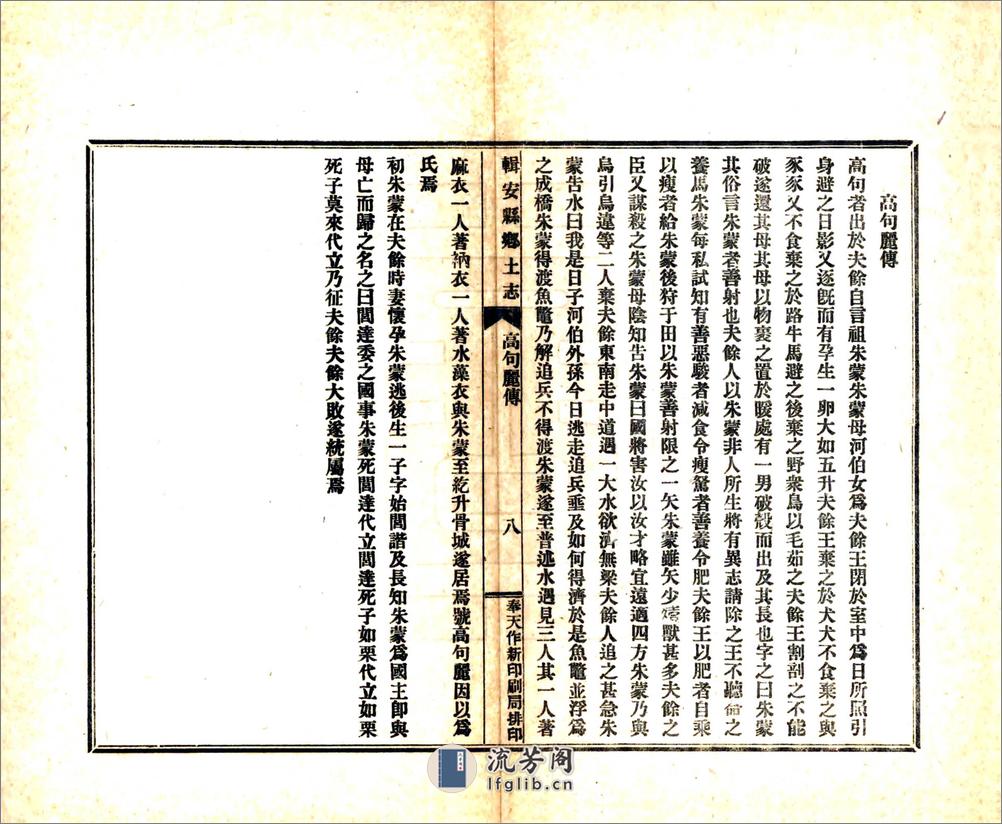 高句麗傳
高句者出於夫餘自言祖朱蒙朱蒙母河伯女為夫餘王閉於室中為日所照引
身避之日影又逐旣而有孕生一卵大如五升夫餘王棄之於犬犬不食棄之與
豕豕又不食棄之於路牛馬避之後棄之野衆鳥以毛茹之夫餘王割剖之不能
破遂還其母其母以物裹之置於暖處有一男破殼而出及其長也字之曰朱蒙
其俗言朱蒙者善射也夫餘人以朱蒙非人所生將有異志請除之王不聽命之
養馬朱蒙每私試知有善惡駿者減食令瘦駑者善養令肥夫餘王以肥者自乘
以瘦者給朱蒙後狩于田以朱蒙善射限之一矢朱蒙雖矢少殪獸甚多夫餘之
臣又謀殺之朱蒙母陰知告朱蒙曰國將害汝以汝才略宜遠適四方朱蒙乃與
烏引烏違等二人棄夫餘東南走中道遇一大水欲濟無梁夫餘人追之甚急朱
蒙告水曰我是日子河伯外孫今日逃走追兵垂及如何得濟於是魚鼈並浮為
之成橋朱蒙得渡魚鼈乃解追兵不得渡朱蒙遂至普述水遇見三人其一人著
輯安縣鄉土志 高句麗傳 八 奉天作新印刷局排印
麻衣一人著衲衣一人著水藻衣與朱蒙至紇升骨城遂居焉號高句麗因以為
氏焉
初朱蒙在夫餘時妻懷孕朱蒙逃後生一子字始閭諧及長知朱蒙為國主卽與
母亡而歸之名之曰閭達委之國事朱蒙死閭達代立閭達死子如栗代立如栗
死子莫來代立乃征夫餘夫餘大敗遂統屬焉
流芳阁
lfglib.cn